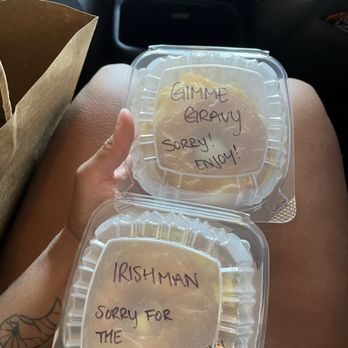 GIMME
GRAVY
SORRY!
ENJOY!
IRISHMAN
SORRY FOR
THE